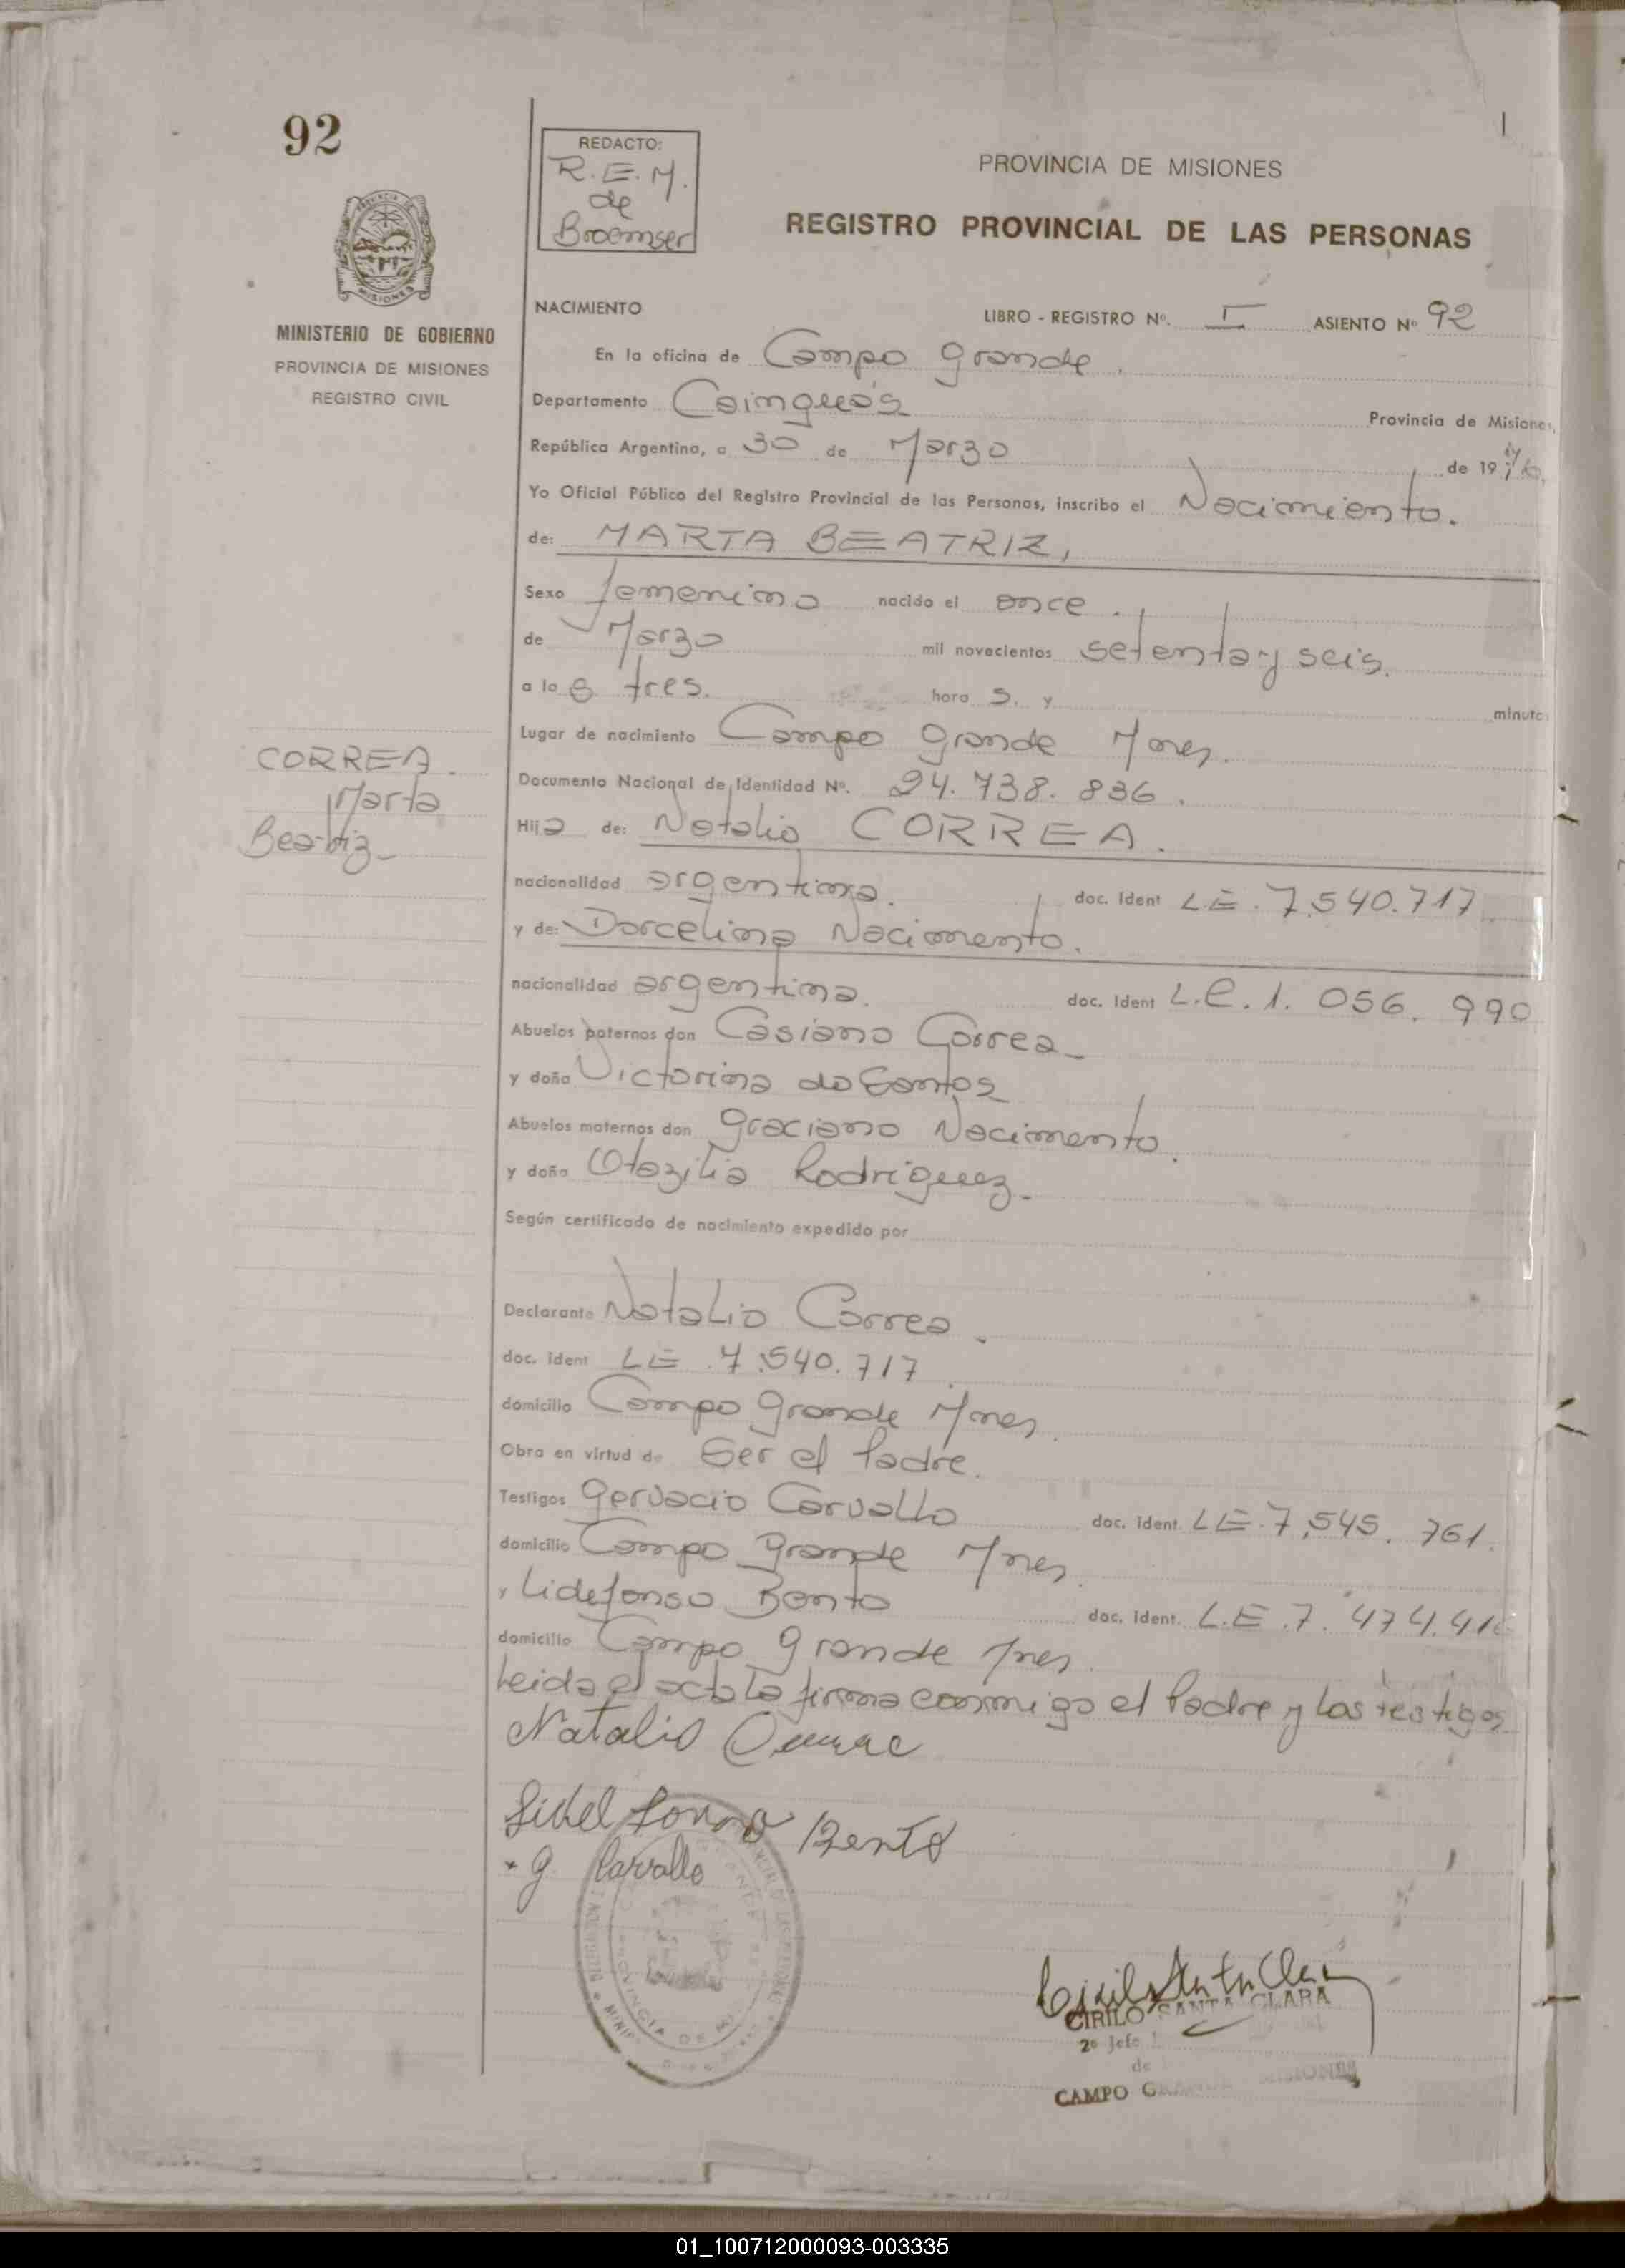 92
REDACTO:
R.E.M.
de
Broemser
PROVINCIA DE MISIONES
REGISTRO PROVINCIAL DE LAS PERSONAS
MISIONES
MINISTERIO DE GOBIERNO
PROVINCIA DE MISIONES
REGISTRO CIVIL
NACIMIENTO
LIBRO - REGISTRO Nº. I ASIENTO Nº 92
En la oficina de Campo Grande.
Departamento Cainguás Provincia de Misiones,
República Argentina, a 30 de Marzo de 19
Yo Oficial Público del Registro Provincial de las Personas, inscribo el Nacimiento.
de: MARTA BEATRIZ,
Sexo femenino nacido el once.
de Marzo mil novecientos setenta y seis.
a las tres. hora s. y minutos
Lugar de nacimiento Campo Grande Mnes.
Documento Nacional de Identidad Nº. 24.738.836.
CORREA.
Marta
Beatriz-
Hija de: Natalio CORREA.
nacionalidad argentina. doc. Ident LE. 7.540.717.
y de: Dorcelina Nacimento.
nacionalidad argentina. doc. Ident L.C. 1. 056. 990
Abuelos paternos don Casiano Correa-
y doña Victorina do Santos
Abuelos maternos don Graciano Nacimento.
y doña Otazilia Rodriguez-
Según certificado de nacimiento expedido por
Declarante Natalio Correa.
doc. ident LE. 7.540.717.
domicilio Campo Grande Mnes.
Obra en virtud de Ser el Padre.
Testigos Gervacio Carvallo doc. ident. LE. 7.545. 761.
domicilio Campo Grande Mnes.
y Lidefonso Bento doc. ident. L.E. 7. 474.41
domicilio Campo Grande Mnes.
Leida el acta la firma conmigo el Padre y los testigos
Natalio
Bento
G Carvallo
PROVINCIA DE
CIRILO SANTA CLARA
2º Jefe
de
CAMPO GRANDE MISIONES
01_100712000093-003335